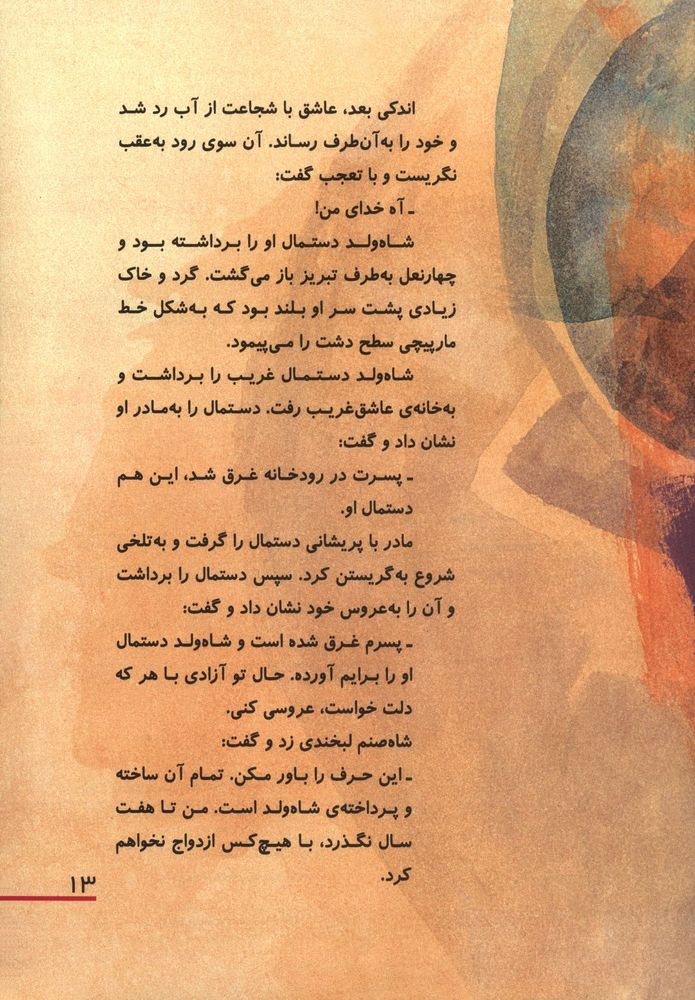 اندکی بعد، عاشق با شجاعت از آب رد شد
و خود را به‌آن‌طرف رساند. آن سوی رود به‌عقب
نگریست و با تعجب گفت:
ـ آه خدای من!
شاه‌ولد دستمال او را برداشته بود و
چهارنعل به‌طرف تبریز باز می‌گشت. گرد و خاک
زیادی پشت سر او بلند بود که به‌شکل خط
مارپیچی سطح دشت را می‌پیمود.
شاه‌ولد دستمال غریب را برداشت و
به‌خانه‌ی عاشق‌غریب رفت. دستمال را به‌مادر او
نشان داد و گفت:
ـ پسرت در رودخانه غرق شد، این هم
دستمال او.
مادر با پریشانی دستمال را گرفت و به‌تلخی
شروع به‌گریستن کرد. سپس دستمال را برداشت
و آن را به‌عروس خود نشان داد و گفت:
ـ پسرم غرق شده است و شاه‌ولد دستمال
او را برایم آورده. حال تو آزادی با هر که
دلت خواست، عروسی کنی.
شاه‌صنم لبخندی زد و گفت:
ـ این حرف را باور مکن. تمام آن ساخته
و پرداخته‌ی شاه‌ولد است. من تا هفت
سال نگذرد، با هیچ‌کس ازدواج نخواهم
کرد.
۱۳